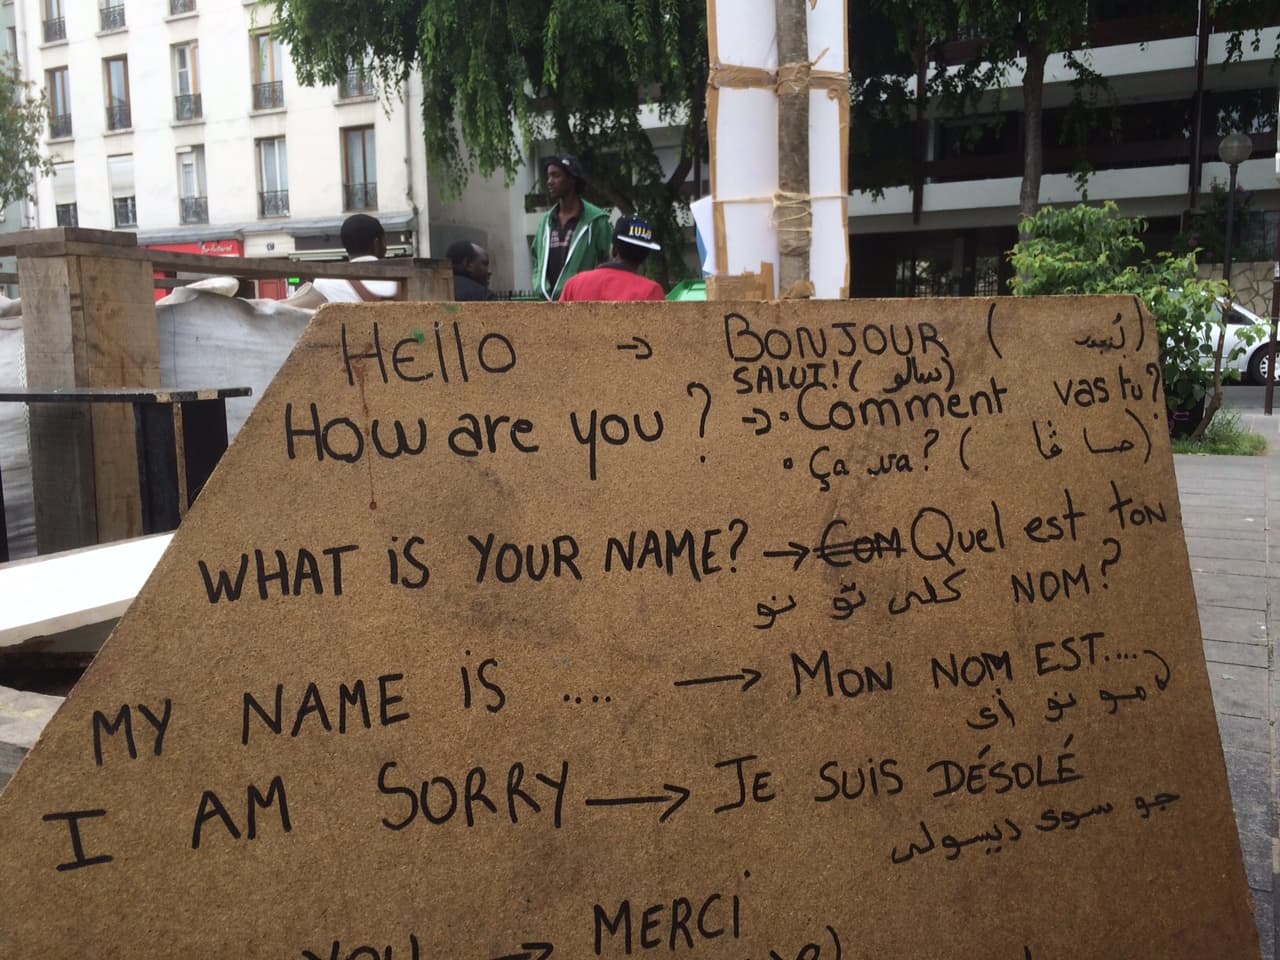 Hello → BONJOUR ( )
SALUI! (سالو)
How are you? → • Comment vas tu?
• Ça va? (صا ڤا)
WHAT iS YOUR NAME? → COM Quel est TON
NOM? كلى تو نو
MY NAME iS .... → MON NOM EST....
مو نو أى
I AM SORRY → JE SUiS DÉSOLÉ
جو سوى ديسولى
YOU → MERCi